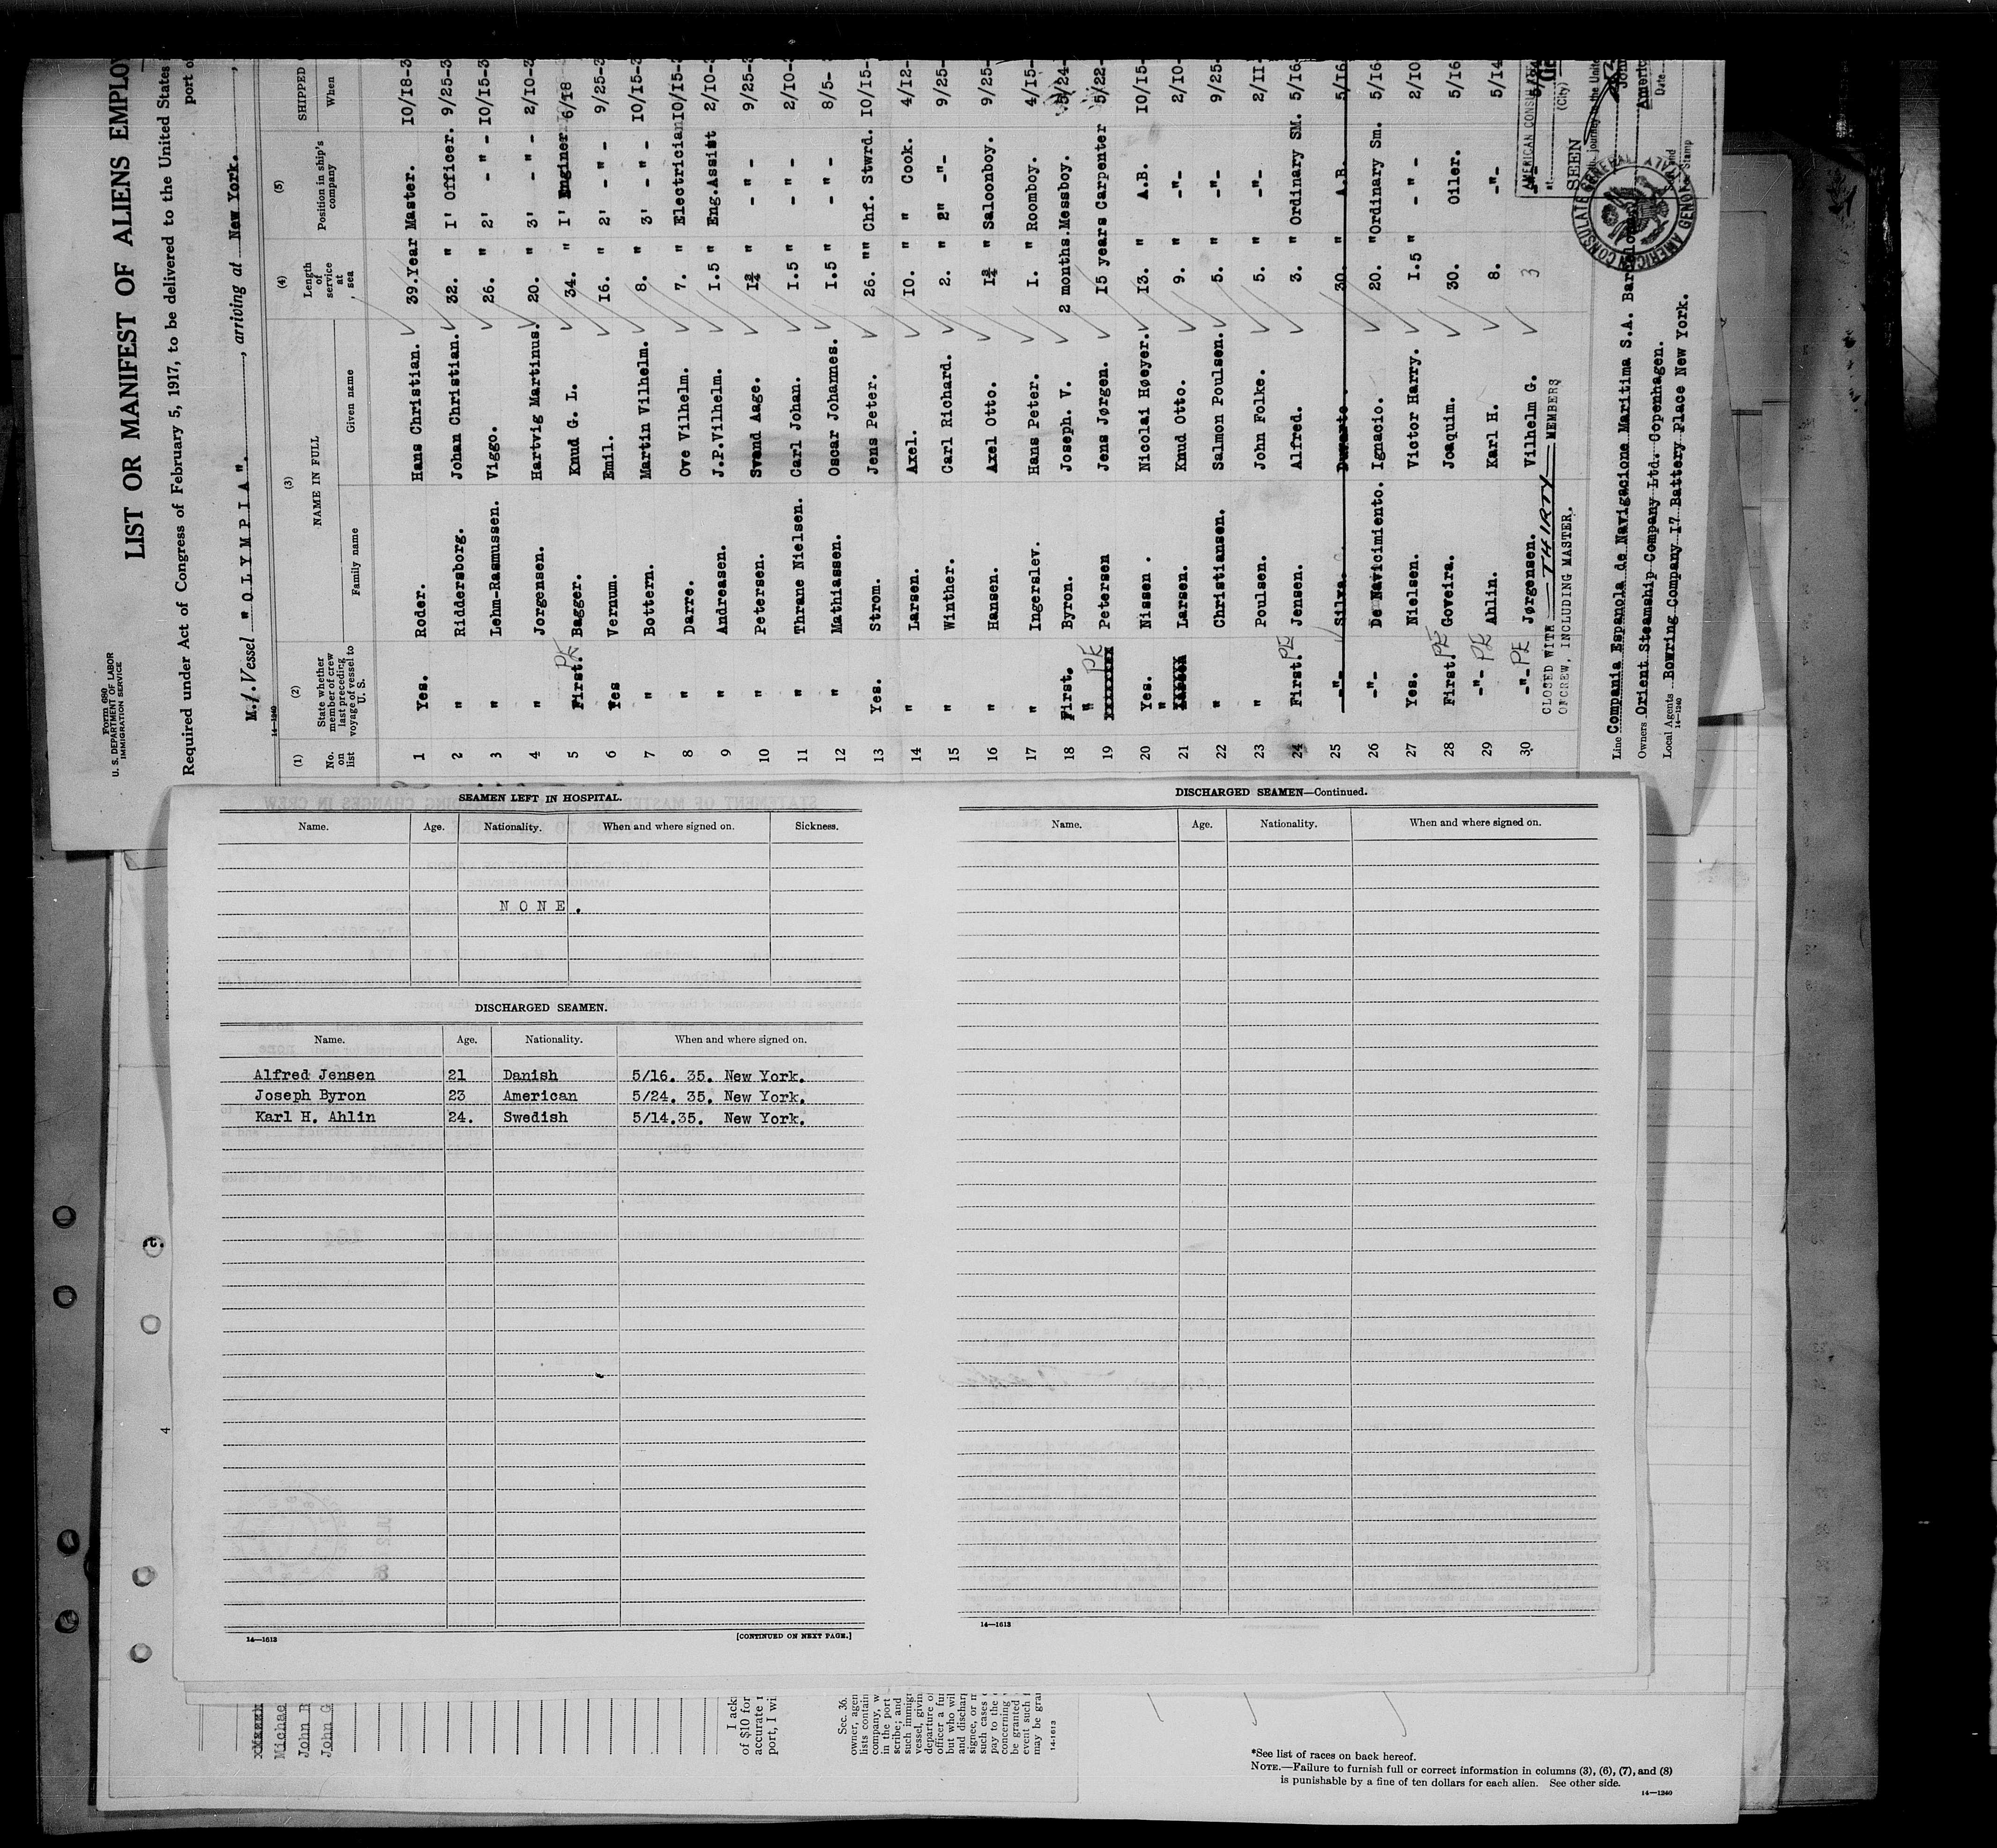 Form 680
U. S. DEPARTMENT OF LABOR
IMMIGRATION SERVICE
LIST OR MANIFEST OF ALIENS
Required under Act of Congress of February 5, 1917, to be delivered to the United States
port of
M./.Vessel "OLYMPIA"., arriving at New York.
14—1240
(1) (2) (3) (4) (5)
No. on list State whether member of crew last preceding voyage of vessel to U. S. NAME IN FULL Family name Given name Length of service at sea Position in ship's company SHIPPED When
1 Yes. Roder. Hans Christian. 39.Year Master. 10/18-3
2 " Riddersborg. Johan Christian. 32. " 1' Officer. 9/25-3
3 " Lehm-Rasmussen. Viggo. 26. " 2' - " - 10/15-3
4 " Jorgensen. Hartvig Martinus. 20. " 3' - " - 2/10-3
5 First. PE Bagger. Knud G. L. 34. " 1' Enginer 6/18
6 Yes Vernum. Emil. 16. " 2' - " - 9/25-3
7 " Bottern. Martin Vilhelm. 8. " 3' - " - 10/15-3
8 " Darre. Ove Vilhelm. 7. " Electrician 10/15-3
9 " Andreasen. J.P.Vilhelm. 1.5 " Eng.Assist 2/10-3
10 " Petersen. Svend Aage. " - " - 9/25-3
11 " Thrane Nielsen. Carl Johan. 1.5 " - " - 2/10-3
12 " Mathiassen. Oscar Johannes. 1.5 " - " - 8/5-
13 Yes. Strom. Jens Peter. 26. "" Chf. Stwrd. 10/15-
14 " Larsen. Axel. 10. " " Cook. 4/12-
15 " Winther. Carl Richard. 2. " 2" -"- 9/25-
16 " Hansen. Axel Otto. " Saloonboy. 9/25-
17 " Ingerslev. Hans Peter. 1. " Roomboy. 4/15-
18 First. Byron. Joseph. V. 2 months. Messboy. 5/24-
19 " PE Petersen Jens Jørgen. 15 years Carpenter 5/22-
20 Yes. Nissen . Nicolai Høeyer. 13. " A.B. 10/15-
21 " Larsen. Knud Otto. 9. " -"- 2/10-
22 " Christiansen. Salmon Poulsen. 5. " -"- 9/25-
23 " Poulsen. John Folke. 5. " -"- 2/11-
24 First. PE Jensen. Alfred. 3. " Ordinary SM. 5/16-
25 -"- Silva. Duarte . 30. " A.B. 5/16
26 -"- De Navicimiento. Ignacio. 20. " Ordinary Sm. 5/16-
27 Yes. Nielsen. Victor Harry. 1.5 " - " - 2/10
28 First. PE Goveira. Joaquim. 30. Oiler. 5/16
29 -"- PE Ahlin. Karl H. 8. -"- 5/14
30 -"- PE Jørgensen. Vilhelm G. 3
CLOSED WITH THIRTY MEMBERS
OF CREW, INCLUDING MASTER.
AMERICAN CONSULATE
(City)
SEEN
Date
Stamp
AMERICAN CONSULATE GENERAL
GENOA ITALY
Line Compania Espanola de Navigacione Maritima S.A.
Owners Orient Steamship Company Ltd. Copenhagen.
Local Agents Bowring Company 17 Battery Place New York.
14—1240
SEAMEN LEFT IN HOSPITAL.
Name. Age. Nationality. When and where signed on. Sickness.
NONE.
DISCHARGED SEAMEN.
Name. Age. Nationality. When and where signed on.
Alfred Jensen 21 Danish 5/16. 35. New York.
Joseph Byron 23 American 5/24. 35. New York.
Karl H. Ahlin 24. Swedish 5/14.35. New York.
14—1613
[CONTINUED ON NEXT PAGE.]
DISCHARGED SEAMEN—Continued.
Name. Age. Nationality. When and where signed on.
14—1613
4
Michae
John R
John G
I ack
of $10 for
accurate
port, I wi
Sec. 36.
owner, agen
lists contain
company, w
in the port
scribe; and
such immigr
vessel, givin
departure o
officer a fu
but who wil
and discharg
signee, or m
such cases
pay to the
concerning
be granted
event such
may be gra
14-1613
*See list of races on back hereof.
NOTE.—Failure to furnish full or correct information in columns (3), (6), (7), and (8)
is punishable by a fine of ten dollars for each alien. See other side.
14—1240